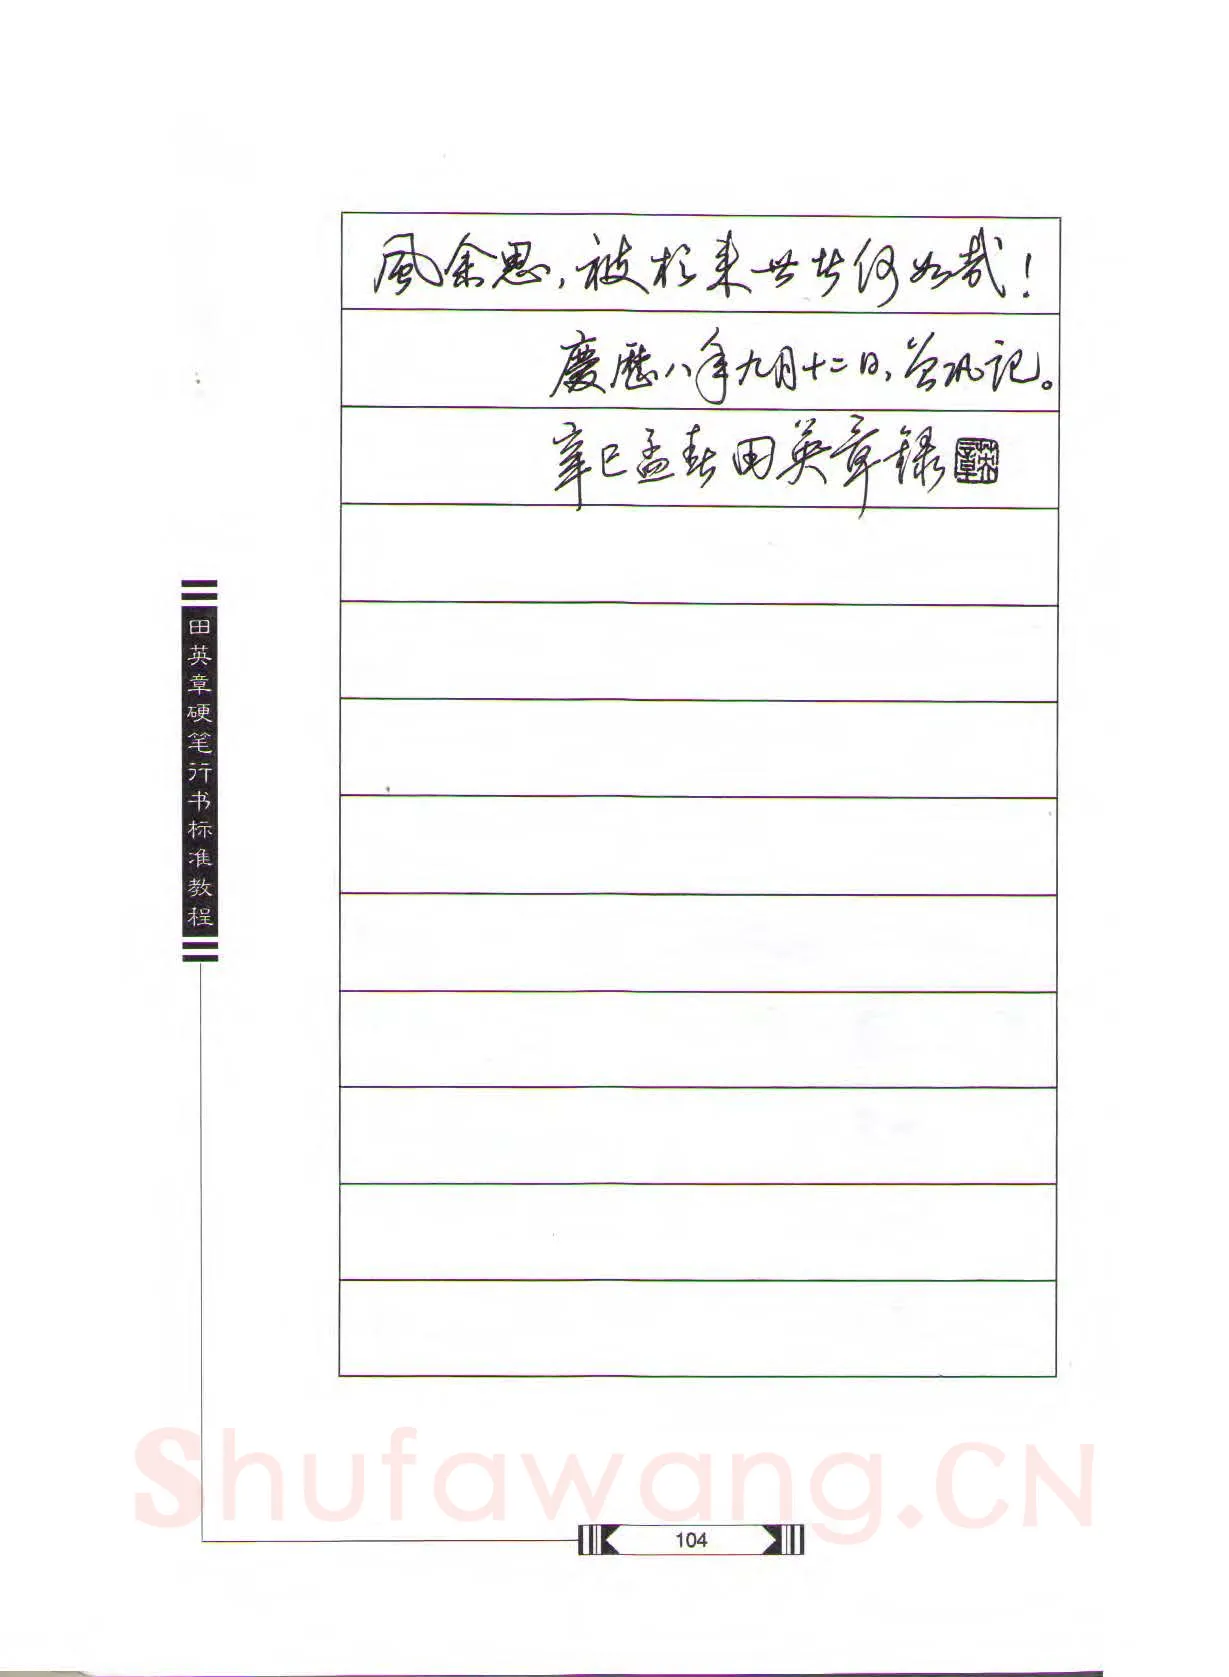 風余思,被於来世者何如哉!
慶歷八年九月十二日,曾巩记。
辛巳孟春田英章録
英章
田英章硬笔行书标准教程
Shufawang.CN
104